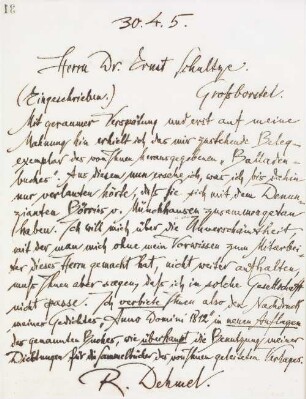 18
30.4.5.
Herrn Dr. Ernst Schultze
(Eingeschrieben.) Großborstel.
Mit geraumer Verspätung und erst auf meine
Mahnung hin erhielt ich das mir zustehende Beleg-
exemplar des von Ihnen herausgegebenen „Balladen-
buches“. Aus diesem ersehe ich, was ich bis dahin
nur verlauten hörte, daß Sie sich mit dem Denun-
zianten Börries v. Münchhausen zusammengetan
haben. Ich will mich über die Unverschämtheit,
mit der man mich ohne mein Vorwissen zum Mitarbei-
ter dieses Herrn gemacht hat, nicht weiter aufhalten,
muß Ihnen aber sagen, daß ich in solche Gesellschaft
nicht passe. Ich verbiete Ihnen also den Nachdruck
meines Gedichtes „Anno Domini 1812“ in neuen Auflagen
des genannten Buches, wie überhaupt die Benutzung meiner
Dichtungen für die Sammelbücher des von Ihnen geleiteten Verlages.
R. Dehmel.